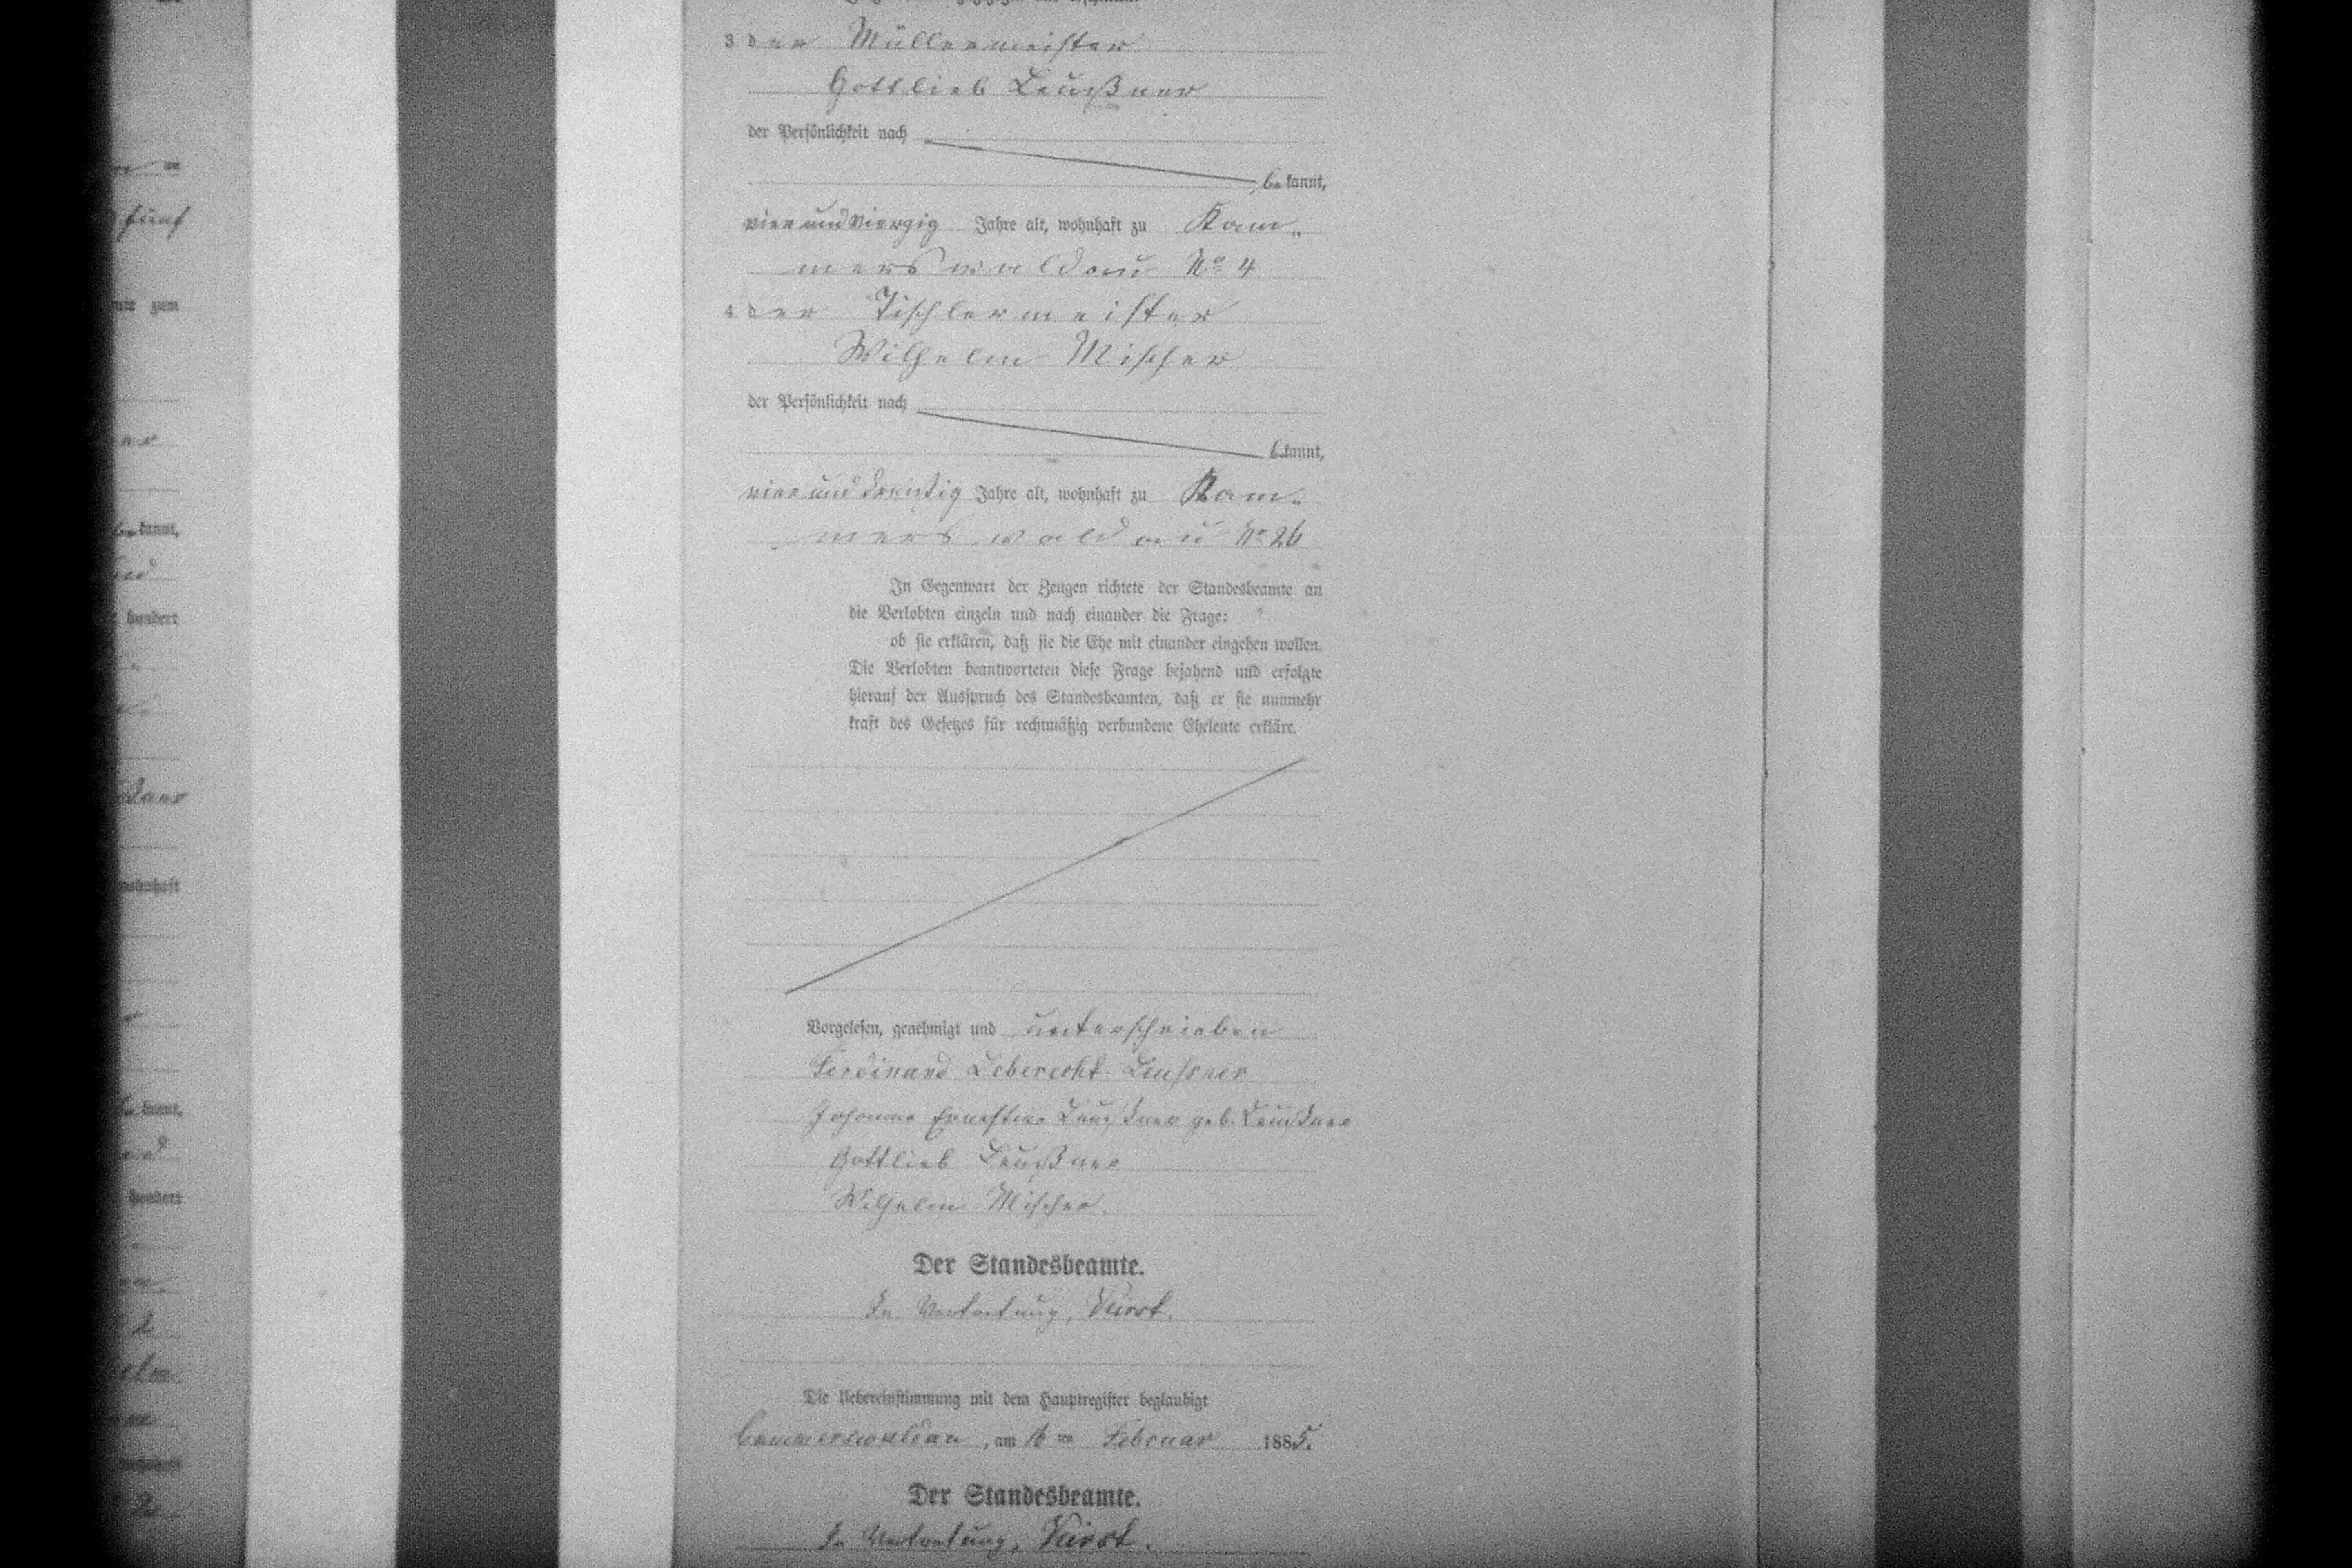 3. der Müllermeister
Gottlieb Leußner
der Persönlichkeit nach
bekannt,
vierundvierzig Jahre alt, wohnhaft zu Kam-
merswaldau No 4
4. der Tischlermeister
Wilhelm Mischer
der Persönlichkeit nach
bekannt,
vierunddreißig Jahre alt, wohnhaft zu Kam-
merswaldau No 26
In Gegenwart der Zeugen richtete der Standesbeamte an
die Verlobten einzeln und nach einander die Frage:
ob sie erklären, daß sie die Ehe mit einander eingehen wollen.
Die Verlobten beantworteten diese Frage bejahend und erfolgte
hierauf der Ausspruch des Standesbeamten, daß er sie nunmehr
kraft des Gesetzes für rechtmäßig verbundene Eheleute erkläre.
Vorgelesen, genehmigt und unterschrieben
Ferdinand Leberecht Leußner
Johanne Ernestine Leußner geb. Leußner
Gottlieb Leußner
Wilhelm Mischer.
Der Standesbeamte.
In Vertretung,
Die Uebereinstimmung mit dem Hauptregister beglaubigt
Cammerswaldau, am 16ten Februar 1885.
Der Standesbeamte.
In Vertretung,
fünf
zum
kannt,
hundert
wohnhaft
kannt,
hundert
2
2